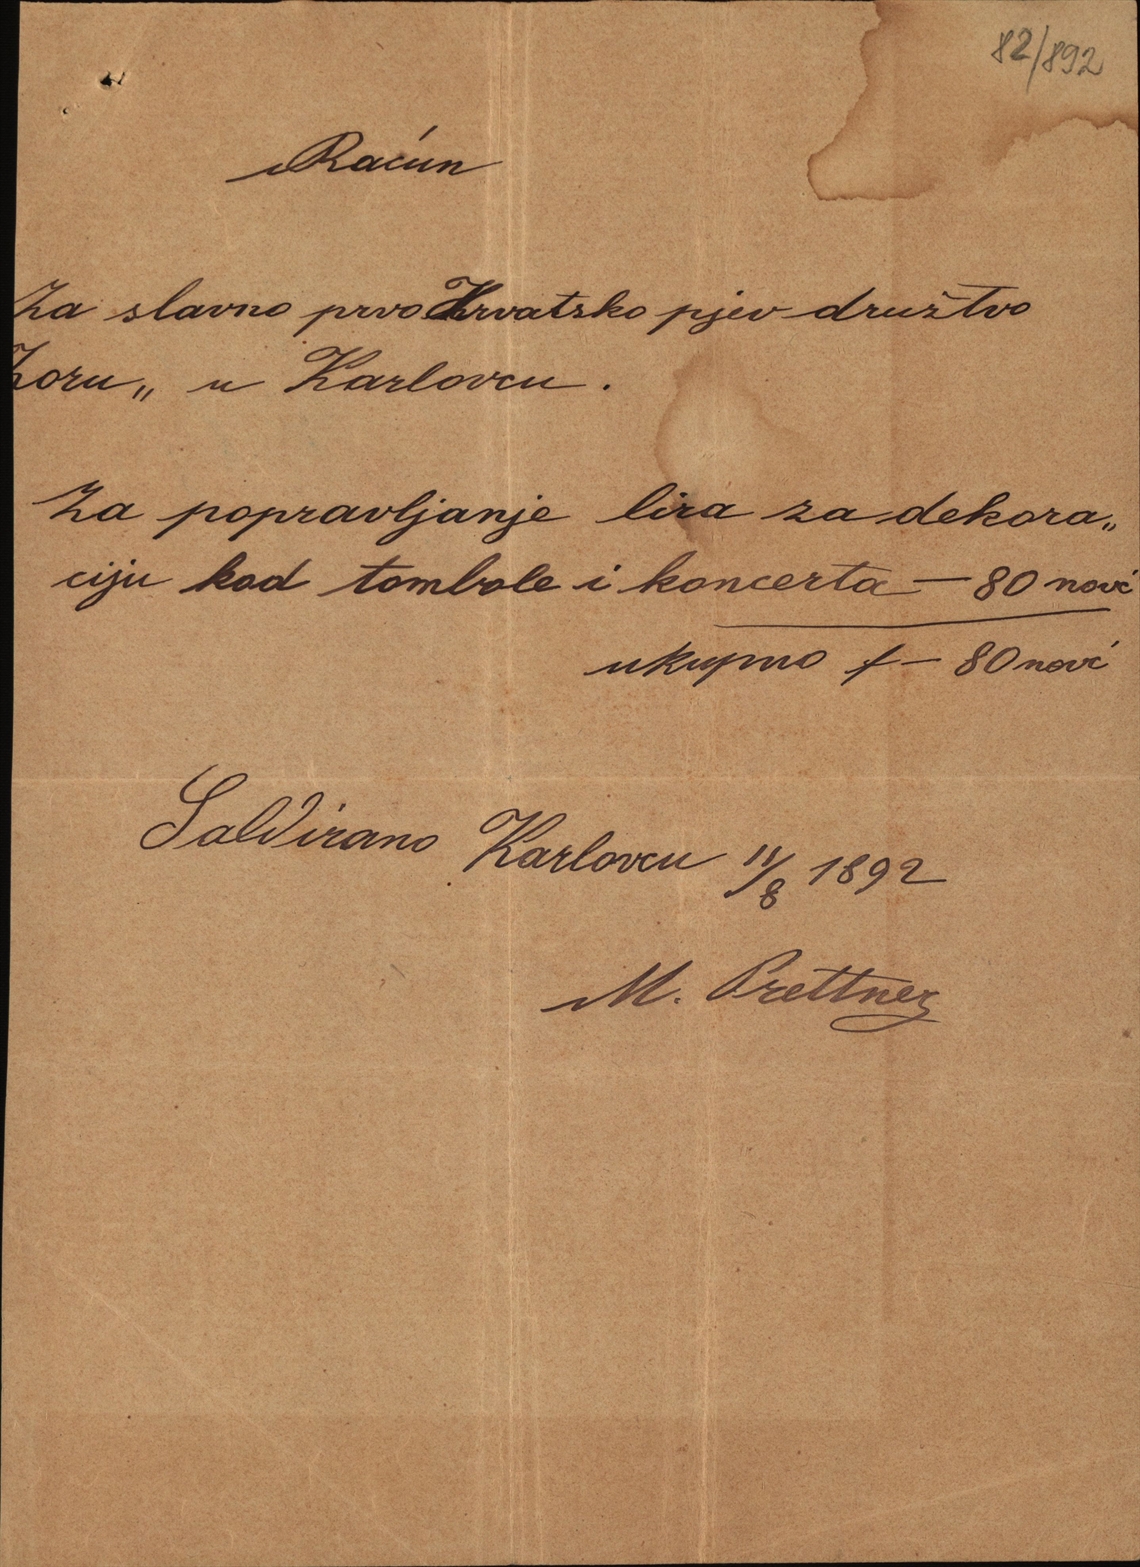 82/892
Račun
Za slavno prvo Hrvatsko pjev družtvo
Zoru„ u Karlovcu.
Za popravljanje lira za dekora„
ciju kod tombole i koncerta — 80 novč
ukupno f — 80 novč
Saldirano Karlovcu 11/8 1892
M. Prettner